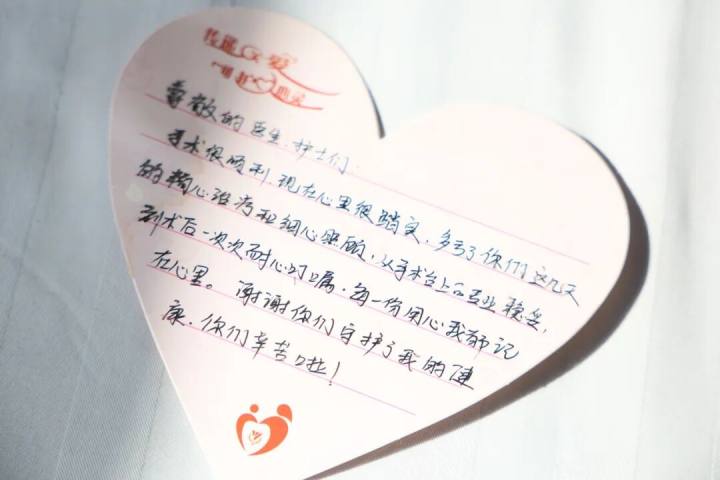 传递关爱
呵护心灵
尊敬的医生、护士们：
手术很顺利，现在心里很踏实，多亏了你们这几天
的精心治疗和细心照顾，从手术台上的专业稳妥，
到术后一次次耐心叮嘱，每一份用心我都记
在心里。谢谢你们守护了我的健
康，你们辛苦啦！